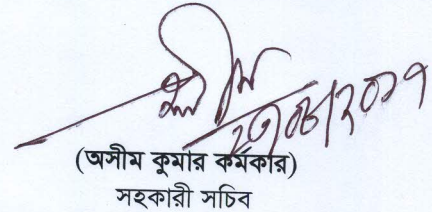 (অসীম কুমার কর্মকার)
সহকারী সচিব